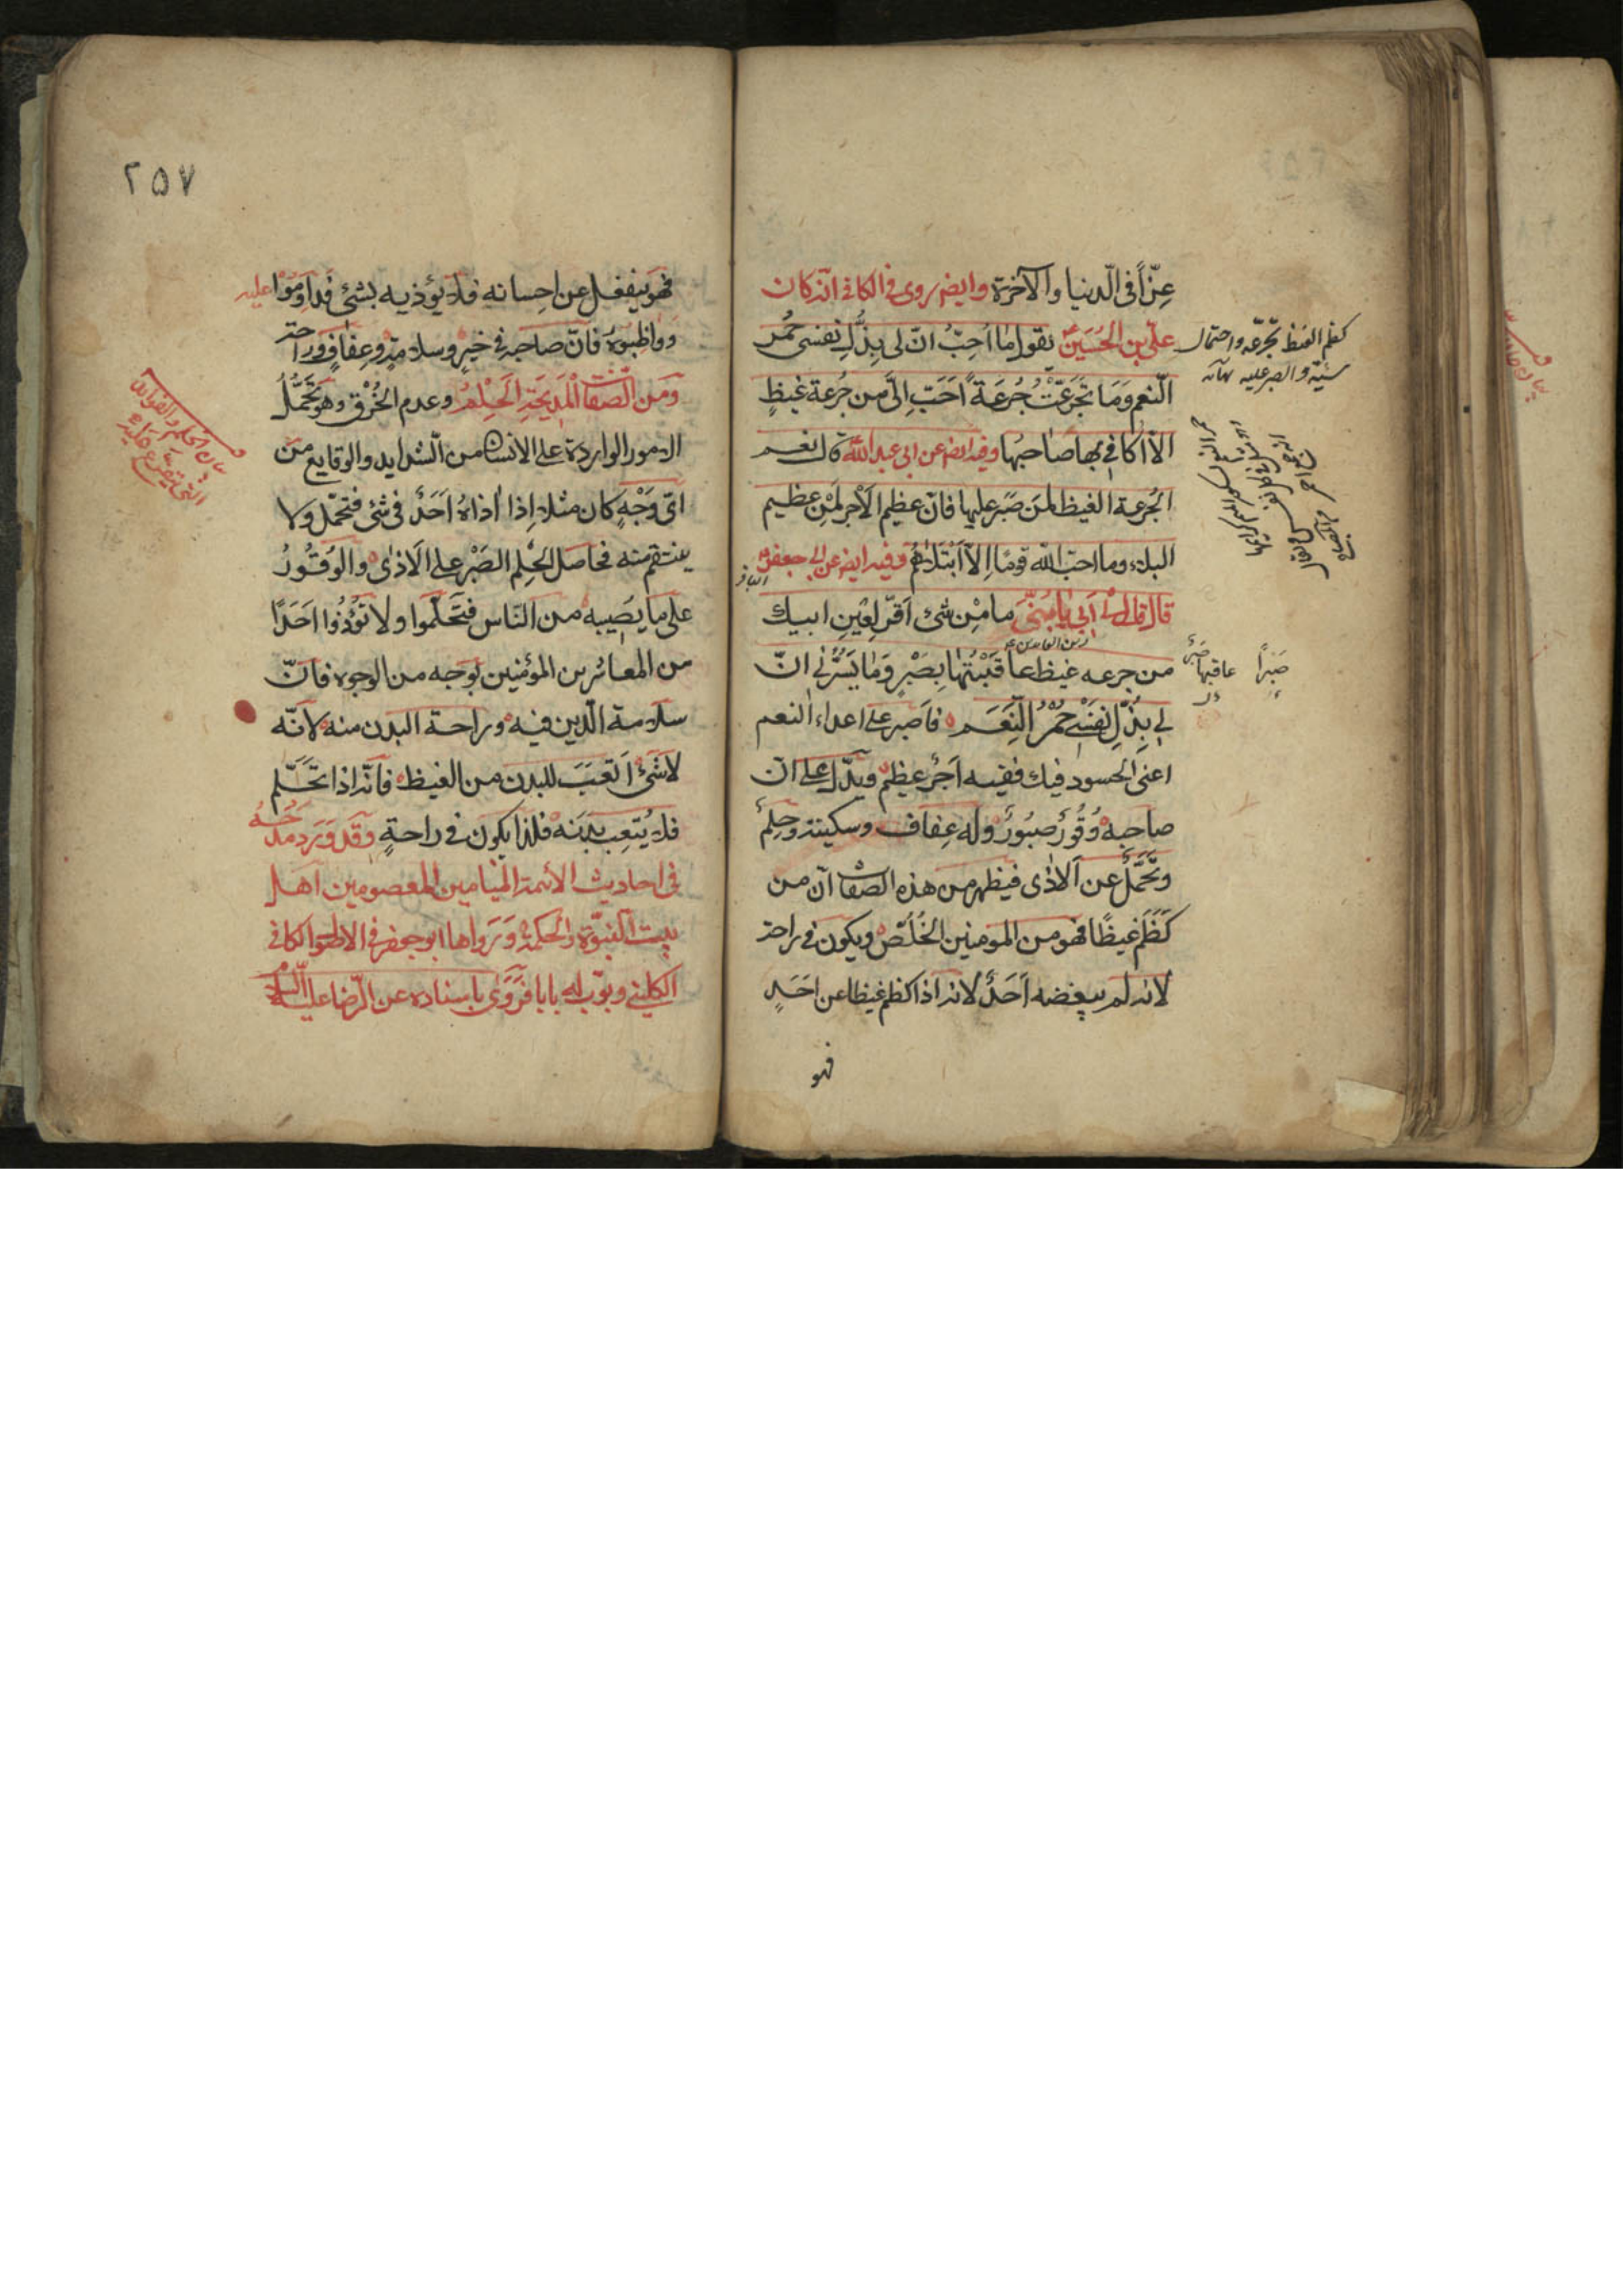 عِزّاً فى الّدنيا والآخرة وايضر روى فى الكافى انّه كان
علّى بن الحُسَين يقول ما اُحِبّ انّ لى بِذُّلِ نفسى حُمُر
الّنعم وَمَا تَجَرّعَتْ جُرعَةً اَحَبّ اِلىّ من جُرعة غيظٍ
الا اكافى بها صَاحبهَا وفيه ايضر عن ابى عبد اللّه قال نعم
الجُرعة الغيظ لمن صَبَر عليها فانّ عظيم الاَجر لَمِن عظيم
البلاء وما احبّ اللّه قومًا اِلاّ ابْتَلاهُم وفيه ايضر عن ابى جعفر
الباقر
قال قال لى اَبى يا بُنَىّ ما مِن شئ اَقرّ لِعَينِ ابيك
زين العابدين ع
من جرعه غيظ عاقَبْتُها بِصَبْرٍ وَمَا يَسُّرنى انّ
لى بِذُّلِ نَفْسى حُمْرُ النِّعَم فاَصبر على اعداء النعم
اعنى الحسود فيك ففيه اَجرٌ عظيم ويدّل على انّ
صاحبه وُقُورٌ صبُورٌ وله عِفاف وسكينة وحِلمٌ
وتَحَّمُلٌ عن الاذى فيظهر من هذه الصّفات انّ من
كَظَمَ غيظًا فهو من المومنين الخُلّص ويكون فى راحة
لانه لم يبغضه اَحَدٌ لانه اذا كظم غيظا عن احَدٍ
فهو
كظم الغيظ تجرّعه واحتمال
سببّه والصبر عليه
صَبراً
عاقبها
٢٥٧
فهو ينفعل عن اِحسانه فلا يؤذيه بشئ فداوِمُوا عليه
وواظِبوُه فانّ صاحبه فى خيرٍ وسلامةٍ وعِفافٍ وراحة
ومن الّصفات الْمَديحَةِ الحِلْم وعدم الخُرْق وهو تَحَمُّلُ
الامور الواردة على الانسان من الشدايد والوقايع من
اىّ وَجْهٍ كان مثلا اِذا اذاهُ اَحَدٌ فى شئ فتحمّل ولا
ينتقم منه فحاصل الحِلم الصَبْر على الاَذى والوُقُورُ
على ما يصَيبه من النّاس فتَحَلّموا ولا تؤُذوُا اَحَدًا
من المعاشرين المؤمنين بوَجه من الوجوه فانّ
سلامة الّدين فيه وراحة البدن منه لانّه
لا شَئ اَتعَبَ للبدن من الغيظ فانّه اذا تَحَلّم
فلا يُتعِب بدَنَه فلذا يكون فى راحةٍ وقد وَرَد مدحُهُ
فى احاديث الائمة المَيامين المعصومين اَهل
بيت النبوّة والحكمة ورَواها ابو جعفر فى الكافى
الكلينى وبوّب له بابا فرَوَى باسناده عن الرّضا عليه السلام
بيان الحلم